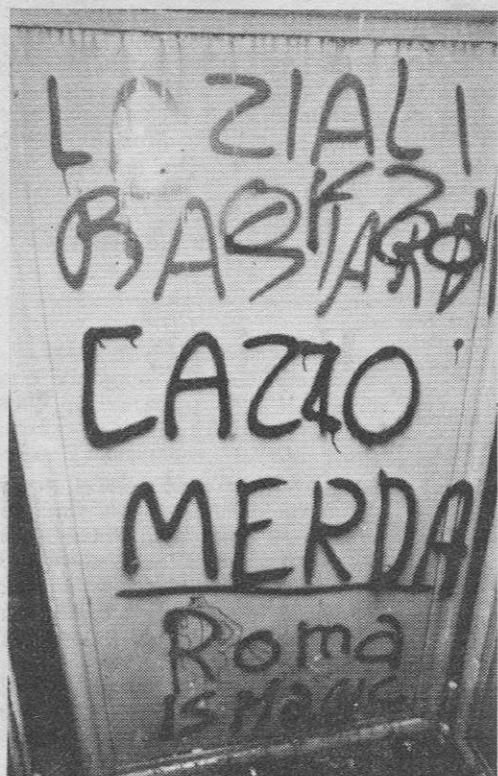 LAZIALI
BASTARDI
CAZZO
MERDA
Roma